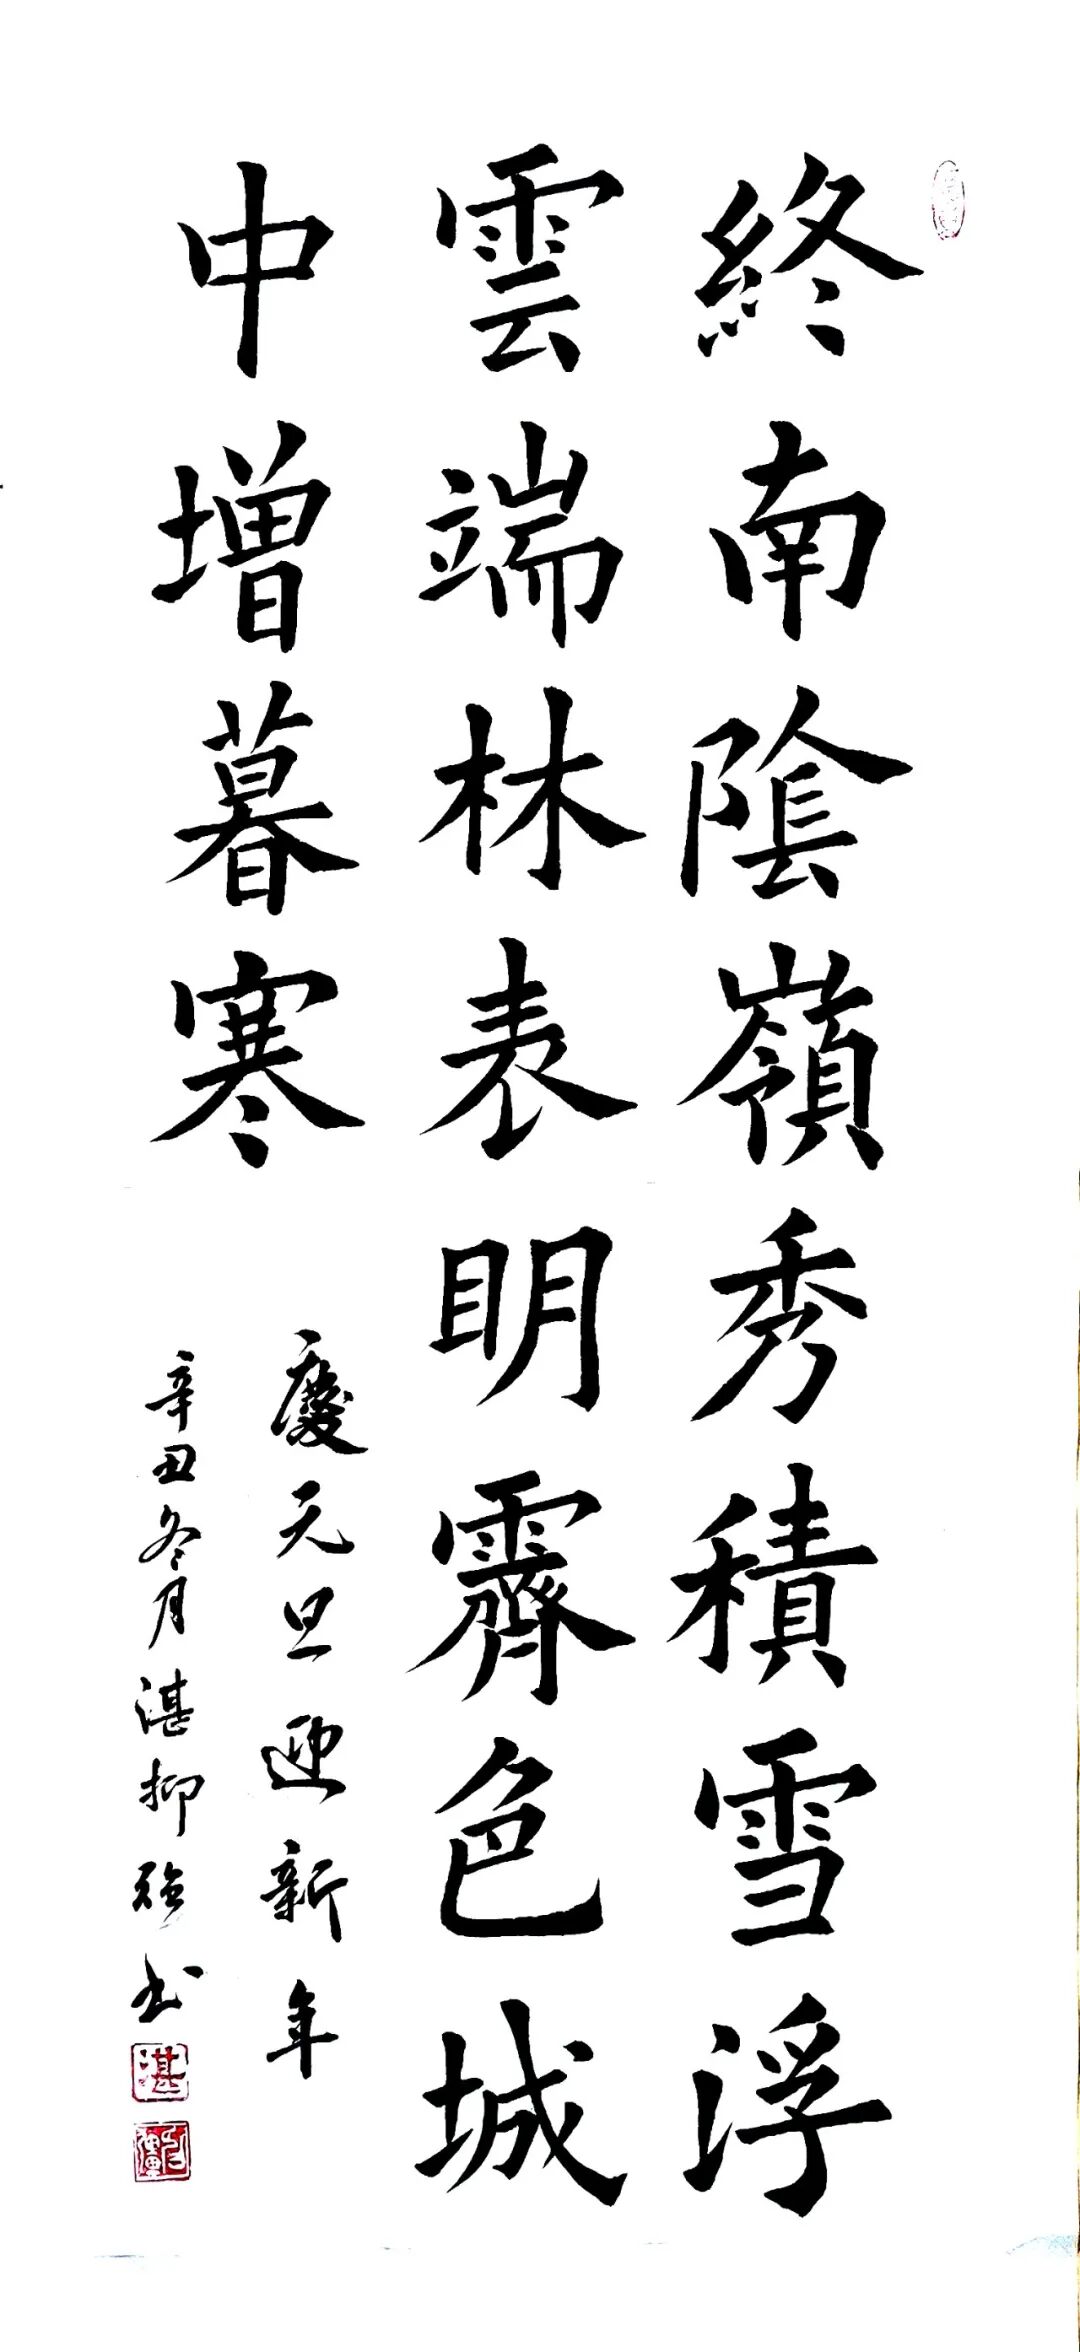 終南陰嶺秀積雪浮
雲端林表明霽色城
中增暮寒
慶元旦迎新年
辛丑冬月湛抑强书
湛